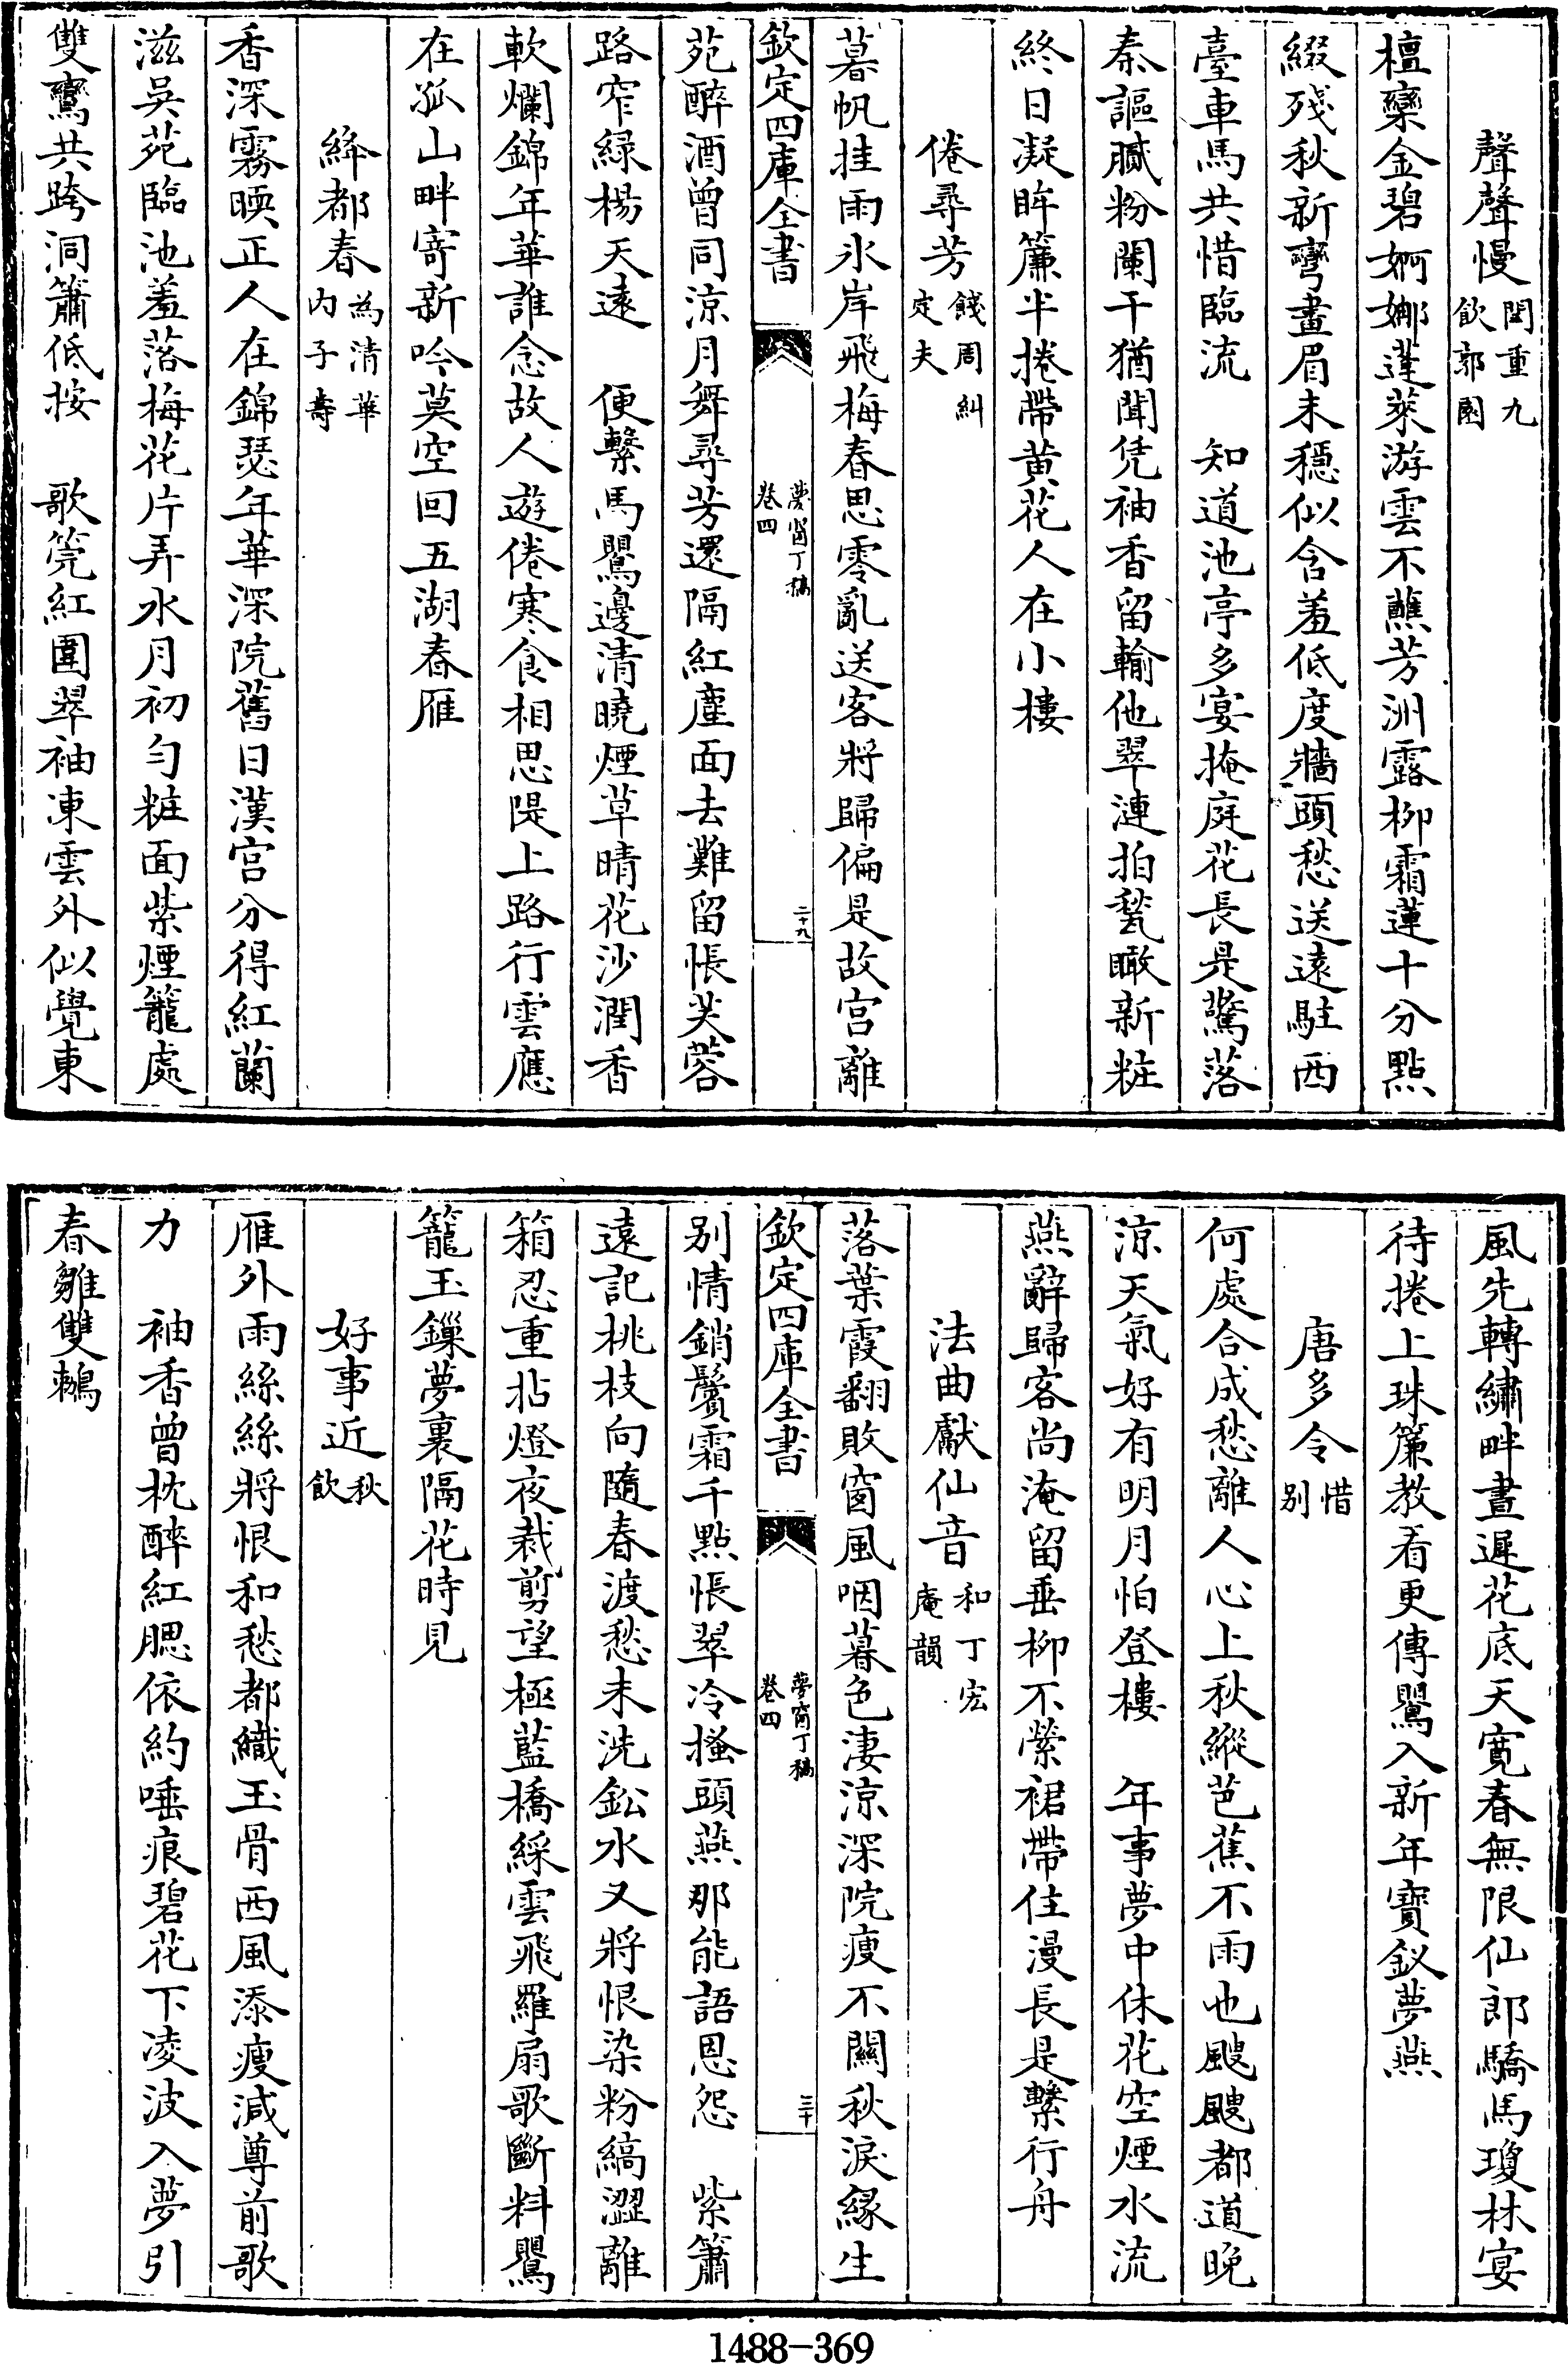 聲聲慢閏重九飲郭園
檀欒金碧婀娜蓬萊游雲不蘸芳洲露柳霜蓮十分點
綴殘秋新彎畫眉未穩似含羞低度牆頭愁送遠駐西
臺車馬共惜臨流　知道池亭多宴掩庭花長是驚落
秦謳膩粉闌干猶聞凭袖香留輸他翠漣拍甃瞰新粧
終日凝眸簾半捲帶黃花人在小樓
倦尋芳餞周糾定夫
暮帆挂雨氷岸飛梅春思零亂送客將歸偏是故宮離
欽定四庫全書　夢窗丁稿卷四　二十九
苑醉酒曾同涼月舞尋芳還隔紅塵面去難留悵芙蓉
路窄綠楊天遠　便繫馬鸎邊清曉煙草晴花沙潤香
軟爛錦年華誰念故人遊倦寒食相思隄上路行雲應
在孤山畔寄新吟莫空回五湖春雁
絳都春為清華內子壽
香深霧暖正人在錦瑟年華深院舊日漢宮分得紅蘭
滋吳苑臨池羞落梅花片弄水月初勻粧面紫煙籠處
雙鸞共跨洞簫低按　歌筦紅圍翠袖凍雲外似覺東
風先轉繡畔晝遲花底天寬春無限仙郎驕馬瓊林宴
待捲上珠簾教看更傳鸎入新年寶釵夢燕
唐多令惜别
何處合成愁離人心上秋縱芭蕉不雨也颼颼都道晚
涼天氣好有明月怕登樓　年事夢中休花空煙水流
燕辭歸客尚淹留垂柳不縈裙帶住漫長是繫行舟
法曲獻仙音和丁宏庵韻
落葉霞翻敗窗風咽暮色淒涼深院瘦不關秋淚緣生
欽定四庫全書　夢窗丁稿卷四　三十
别情銷鬢霜千點悵翠冷搔頭燕那能語恩怨　紫簫
遠記桃枝向隨春渡愁未洗鉛水又將恨染粉縞澀離
箱忍重拈燈夜裁剪望極藍橋綵雲飛羅扇歌斷料鸎
籠玉鏁夢裏隔花時見
好事近秋飲
雁外雨絲絲將恨和愁都織玉骨西風添瘦減尊前歌
力　袖香曾枕醉紅腮依約唾痕碧花下凌波入夢引
春雛雙鶒
1488-369